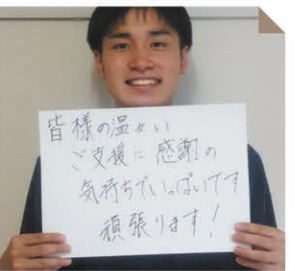 皆様の温かい
ご支援に感謝の
気持ちでいっぱいです
頑張ります！